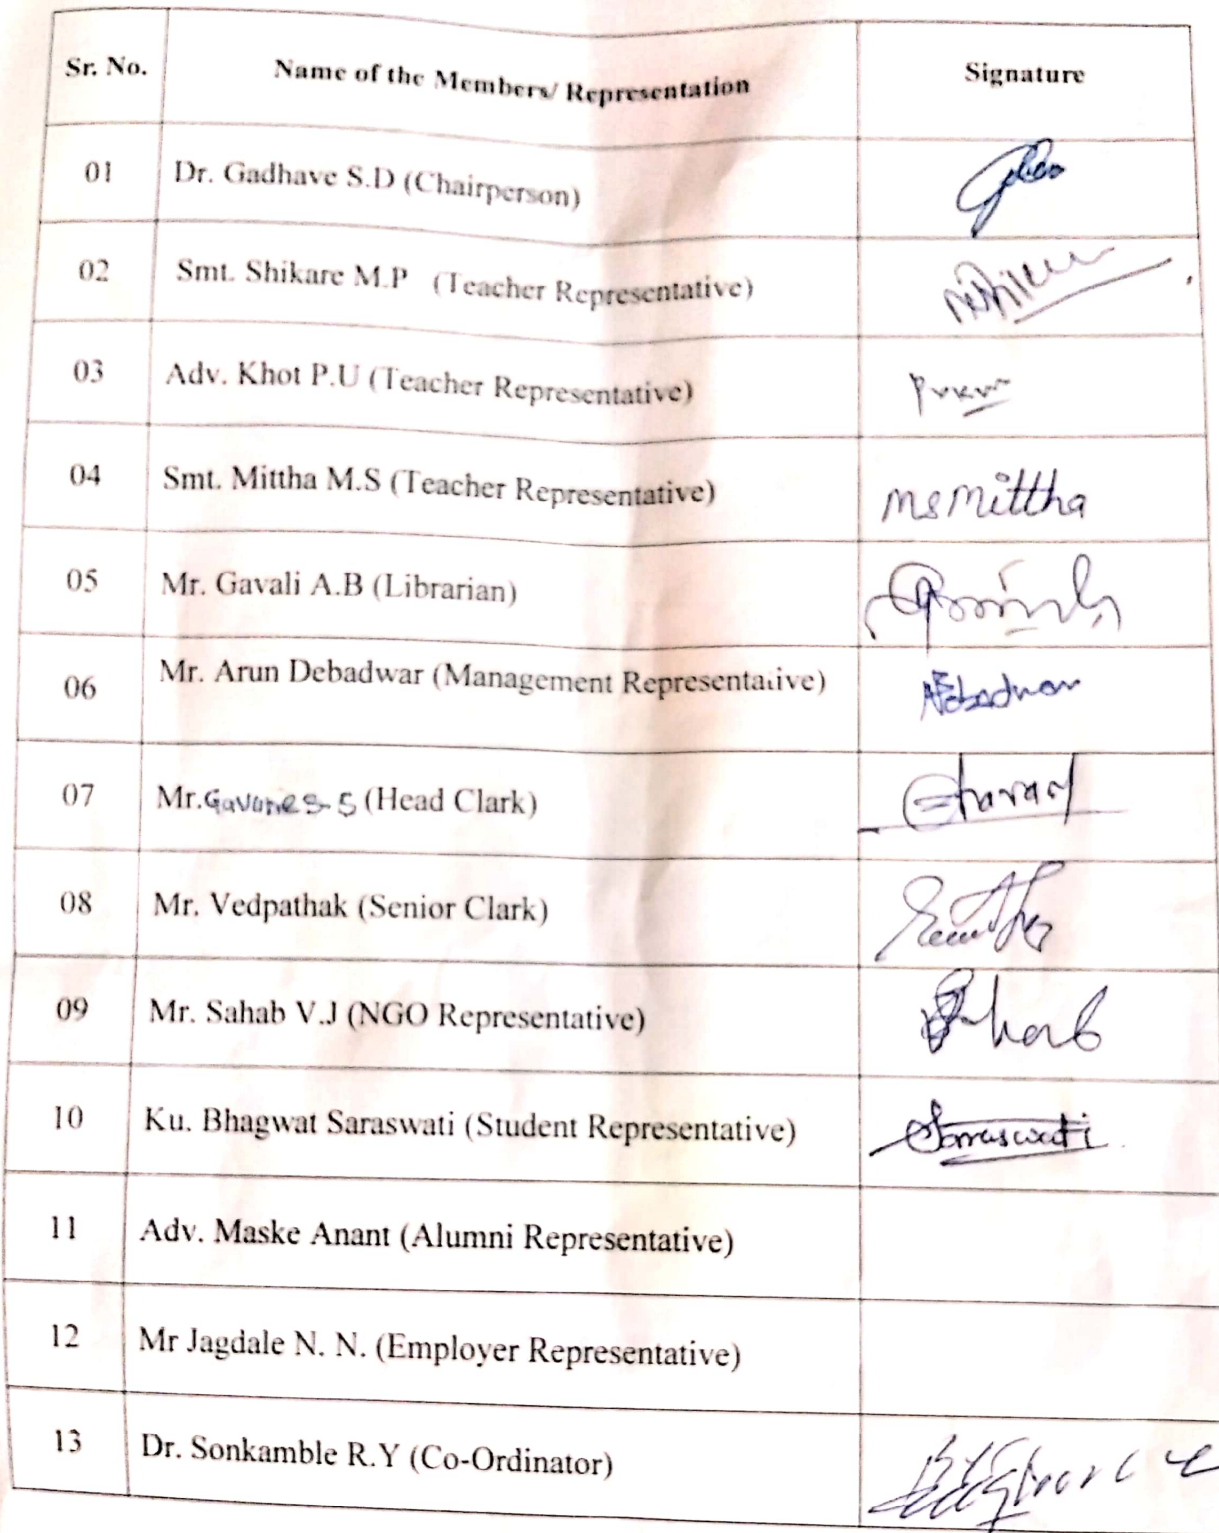 Sr. No. Name of the Members/ Representation Signature
01 Dr. Gadhave S.D (Chairperson)
02 Smt. Shikare M.P (Teacher Representative)
03 Adv. Khot P.U (Teacher Representative)
04 Smt. Mittha M.S (Teacher Representative) MSMittha
05 Mr. Gavali A.B (Librarian)
06 Mr. Arun Debadwar (Management Representative) ADebadwar
07 Mr. Gavane S. S (Head Clark)
08 Mr. Vedpathak (Senior Clark)
09 Mr. Sahab V.J (NGO Representative)
10 Ku. Bhagwat Saraswati (Student Representative) Saraswati
11 Adv. Maske Anant (Alumni Representative)
12 Mr Jagdale N. N. (Employer Representative)
13 Dr. Sonkamble R.Y (Co-Ordinator)